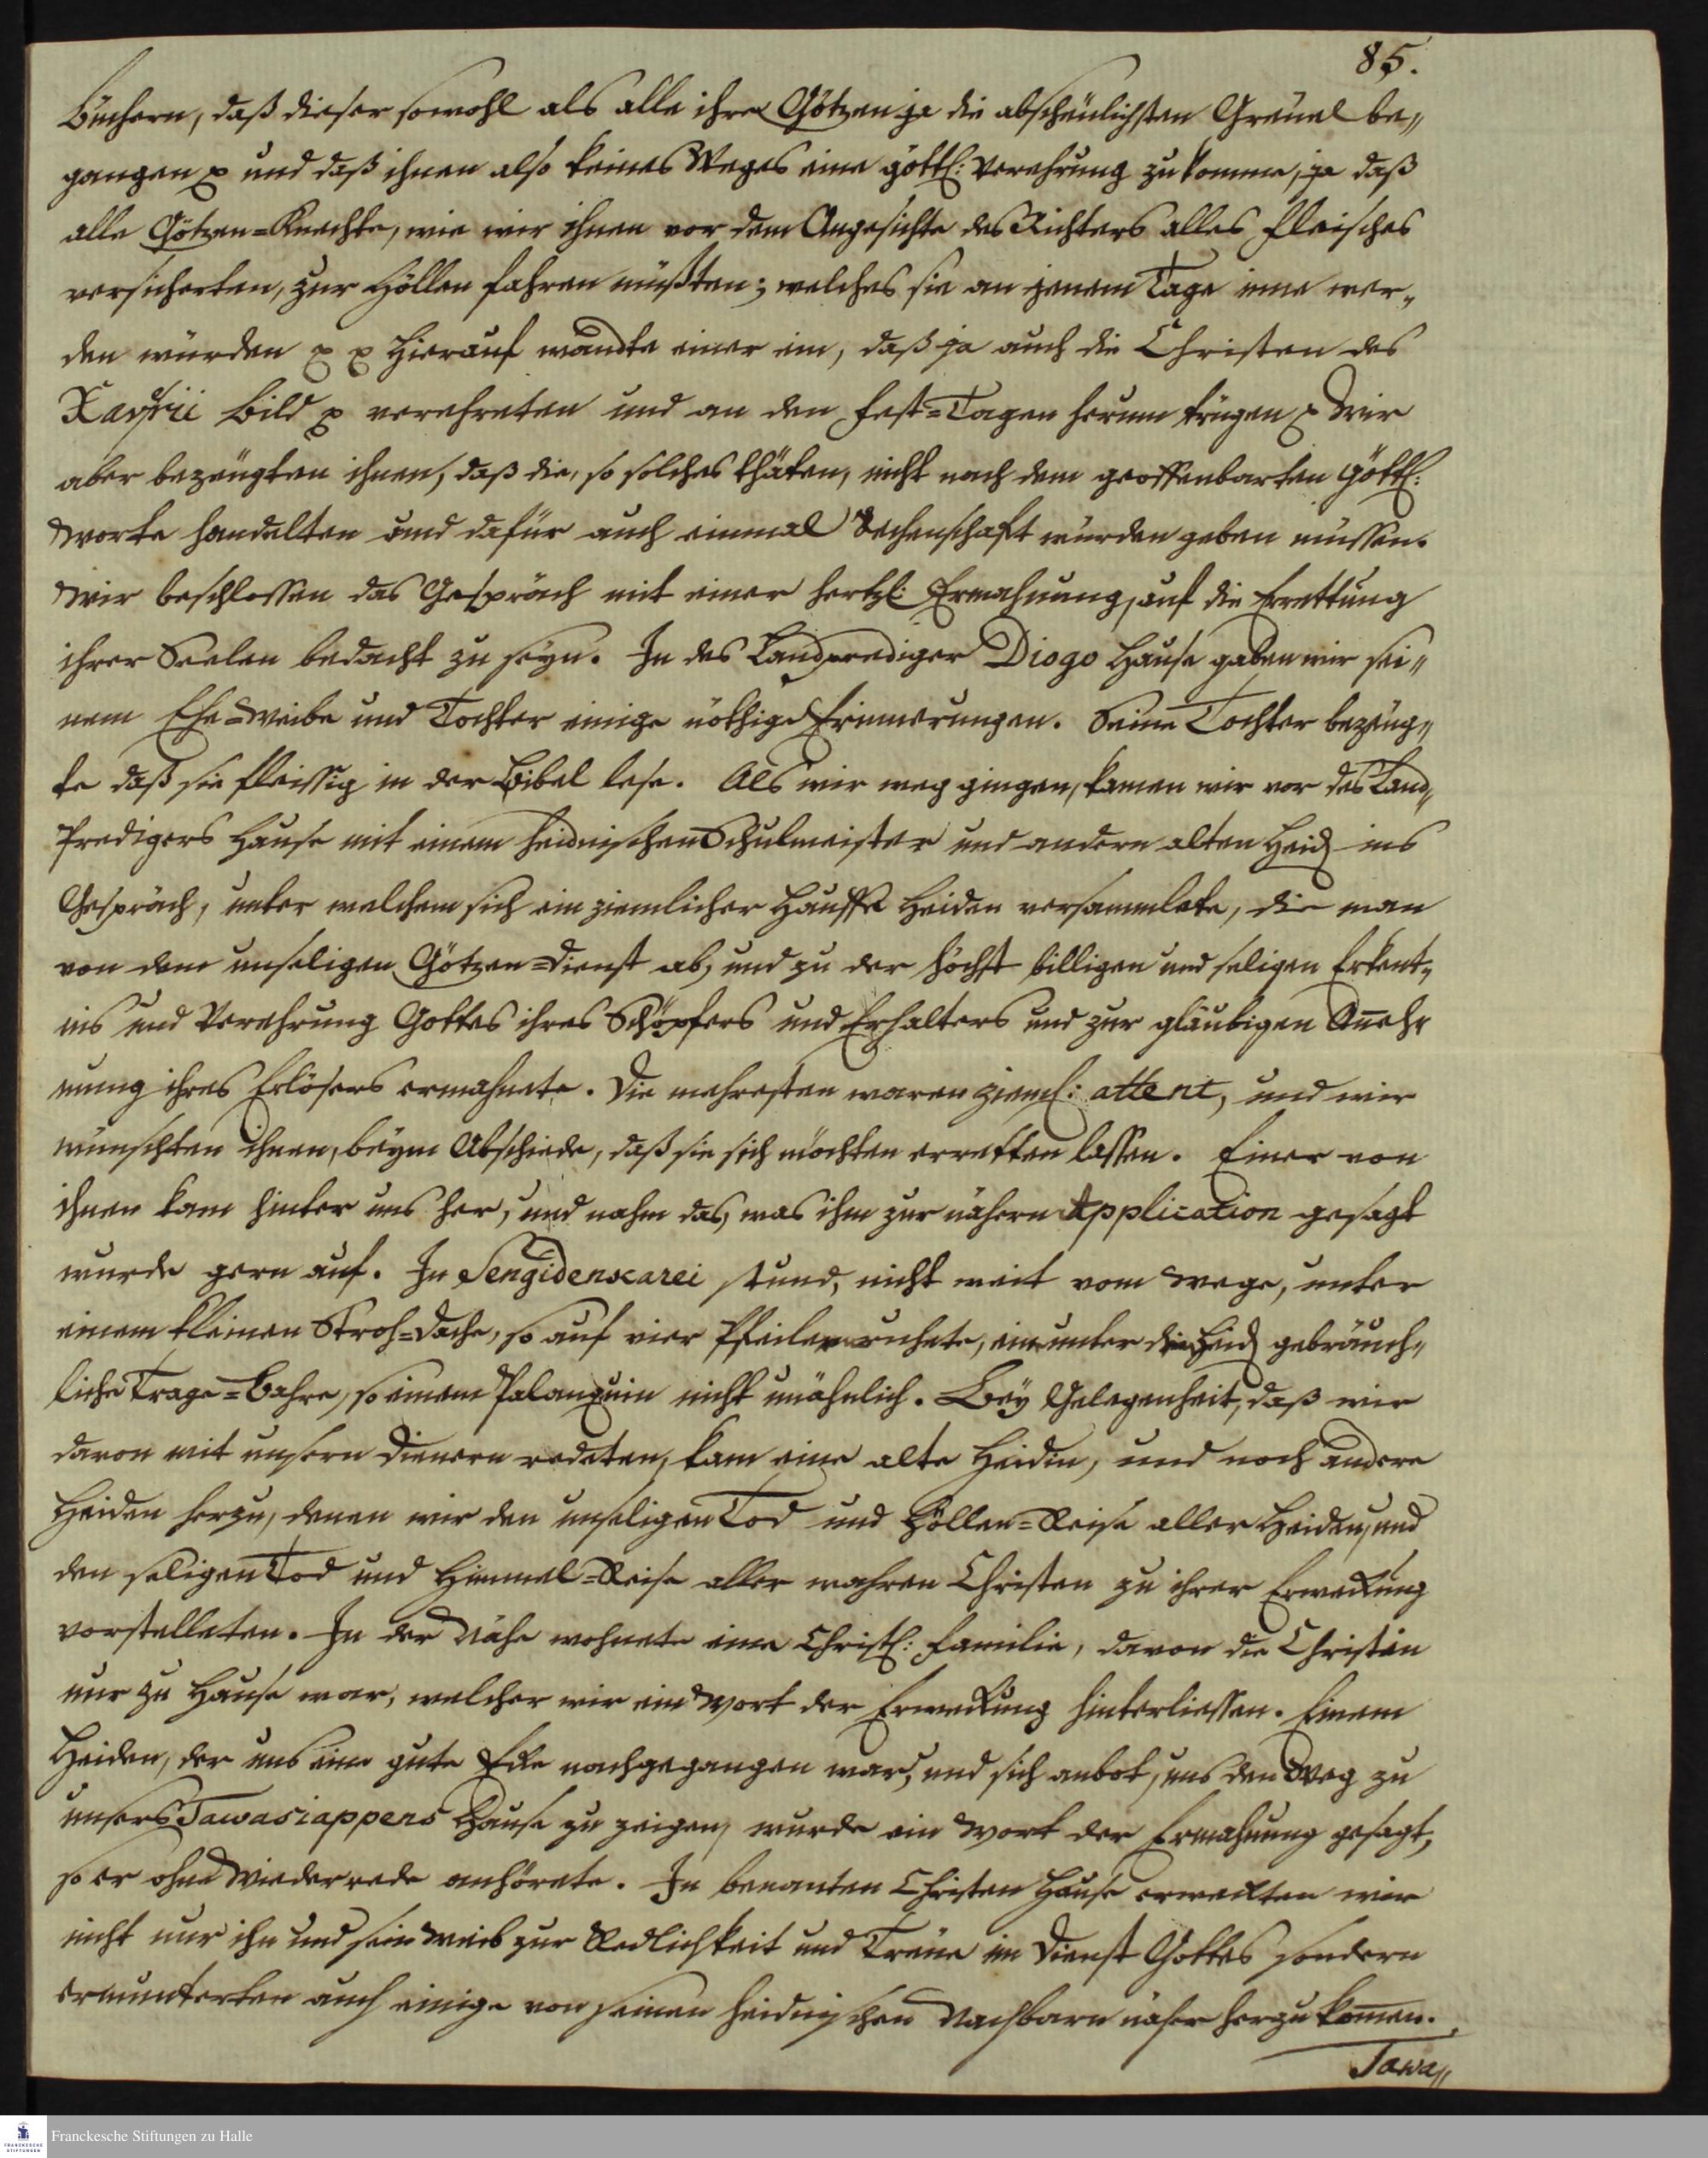 85.
Büchern, daß dieser sowohl als alle ihre Götzen ja die abscheülichsten Greüel be„
gangen p und daß ihnen also keines Weges eine göttl: Verehrung zukomme, ja daß
alle Götzen=Knechte, wie wir ihnen vor dem Angesichte des Richters alles Fleisches
versicherten, zur Höllen fahren müßten; welches sie an jenem Tage inne wer„
den würden p p Hierauf wandte einer ein, daß ja auch die Christen des
Xaverii Bild p verehreten und an den Fest=Tagen herum trügen p Wir
aber bezeügten ihnen, daß die, so solches thäten, nicht nach dem geoffenbarten Göttl:
Worte handelten und dafür auch einmal Rechenschaft würden geben müssen.
Wir beschlossen das Gespräch mit einer hertzl: Ermahnung, auf die Errettung
ihrer Seelen bedacht zu seyn. In des Landprediger Diogo Hause gaben wir sei„
nem Ehe=Weibe und Tochter einige nöthige Erinnerungen. Seine Tochter bezeüg„
te daß sie fleissig in der Bibel lese. Als wir weg gingen, kamen wir vor des Land„
Predigers Hause mit einem heidnischen Schulmeister und andern alten Heid ins
Gespräch, unter welchem sich ein ziemlicher Hauffe Heiden versammlete, die man
von dem unseligen Götzen=Dienst ab, und zu der höchst billigen und seligen Erkent„
nis und Verehrung Gottes ihres Schöpfers und Erhalters und zur gläubigen Anneh„
mung ihres Erlösers ermahnete. Die mehresten waren zieml: attent, und wir
wünschten ihnen, beym Abschiede, daß sie sich möchten erretten lassen. Einer von
ihnen kam hinter uns her, und nahm das, was ihm zur nähern Application gesagt
wurde gern auf. In Sengidenscarei stund, nicht weit vom Wege, unter
einem kleinen Stroh=Dache, so auf vier Pfeilern ruhete, eine unter den Heid gebräuch„
liche Trage=Bahre, so einem Palanquin nicht unähnlich. Bey Gelegenheit, daß wir
davon mit unsern Dienern redeten, kam eine alte Heidin, und noch andere
Heiden herzu, denen wir den unseligen Tod und Höllen=Reise aller Heiden, und
den seligen Tod und Himmel=Reise aller wahren Christen zu ihrer Erweckung
vorstelleten. In der Nähe wohnete eine Christl: Familie, davon die Christin
nur zu Hause war, welcher wir ein Wort der Erweckung hinterliessen. Einem
Heiden, der uns eine gute Ecke nachgegangen war, und sich anbot, uns den Weg zu
unsers Tawasiappens Hause zu zeigen, wurde ein Wort der Ermahnung gesagt,
so er ohne Wiederrede anhörete. In benanten Christen Hause erweckten wir
nicht nur ihn und sein Weib zur Redlichkeit und Treüe im Dienst Gottes sondern
ermunterten auch einige von seinen heidnischen Nachbarn näher herzu komen.
Tawa„
FRANCKESCHE
STIFTUNGEN
Franckesche Stiftungen zu Halle